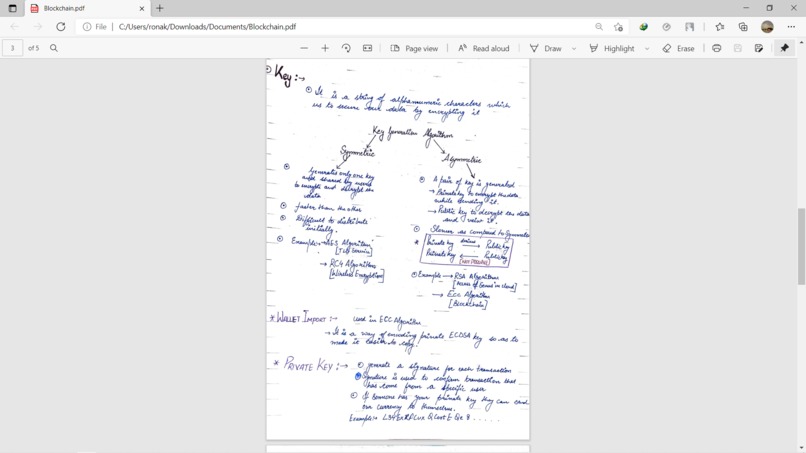 Blockchain.pdf
File
C:/Users/ronak/Downloads/Documents/Blockchain.pdf
3 of 5
Page view
Read aloud
Draw
Highlight
Erase
Key :→
It is a string of alphanumeric characters which
us to secure our data by encrypting it
Key Generation Algorithm
Symmetric
Asymmetric
Generates only one key
and shared key
to encrypt and decrypt the
data
faster than the other
Difficult to distribute
initially.
Example:→ AES Algorithm
→ RC4 Algorithm
[Wireless Encryption]
A pair of key is generated
→ Private key to encrypt the data
while sending it.
→ Public key to decrypt the data
and
Slower as compared to Symmetric
* Private key → Public key
Private key ← Public key
[NOT POSSIBLE]
Example → RSA Algorithm
→ ECC Algorithm
[Blockchain]
* WALLET IMPORT :→ used in ECC Algorithm
→ It is a way of encoding private ECDSA key so as to
make it easier to copy.
* PRIVATE KEY :→ generate a signature for each transaction
Signature is used to confirm transaction that
has come from a specific user
If someone has your private key they can send
currency to themselves.
Example:→